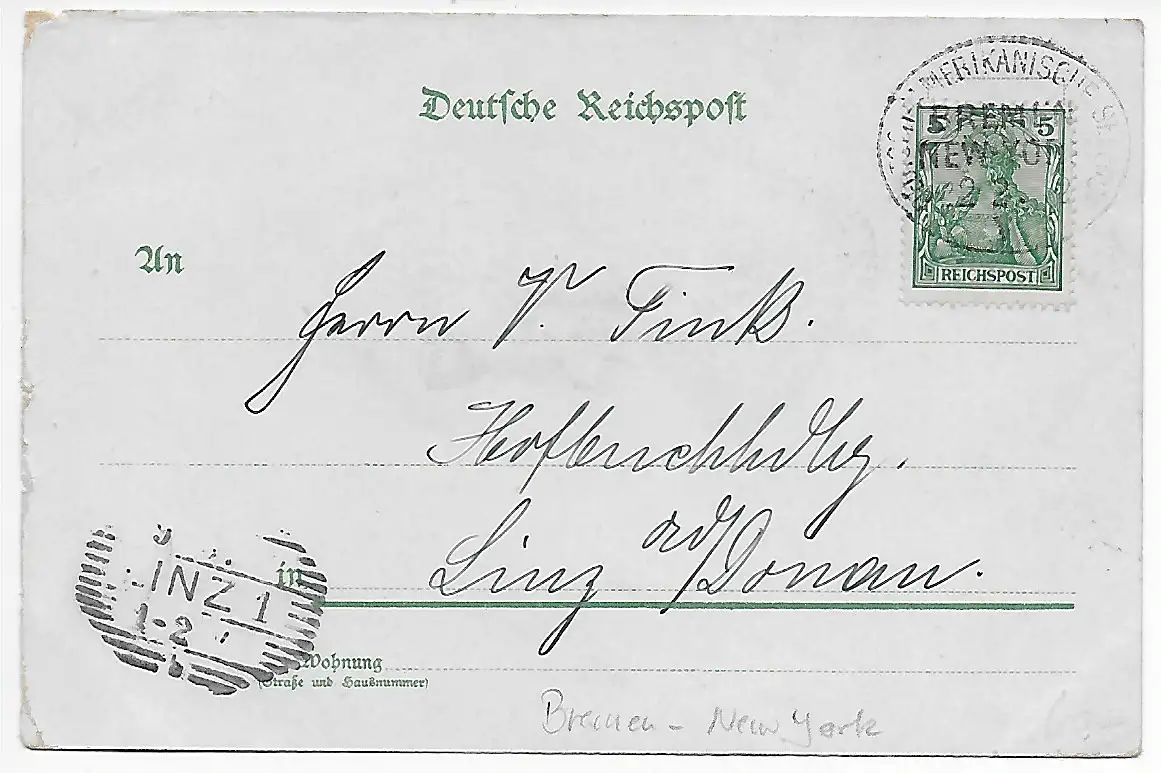 Deutsche Reichspost
AMERIKANISCHE
BREMEN
NEW YO
22 2
5 5
REICHSPOST
An
Herrn V. Fink.
Hofbuchhdlg.
Linz ad/Donau.
in
INZ 1
1.2
Wohnung
(Straße und Hausnummer)
Bremen - New York